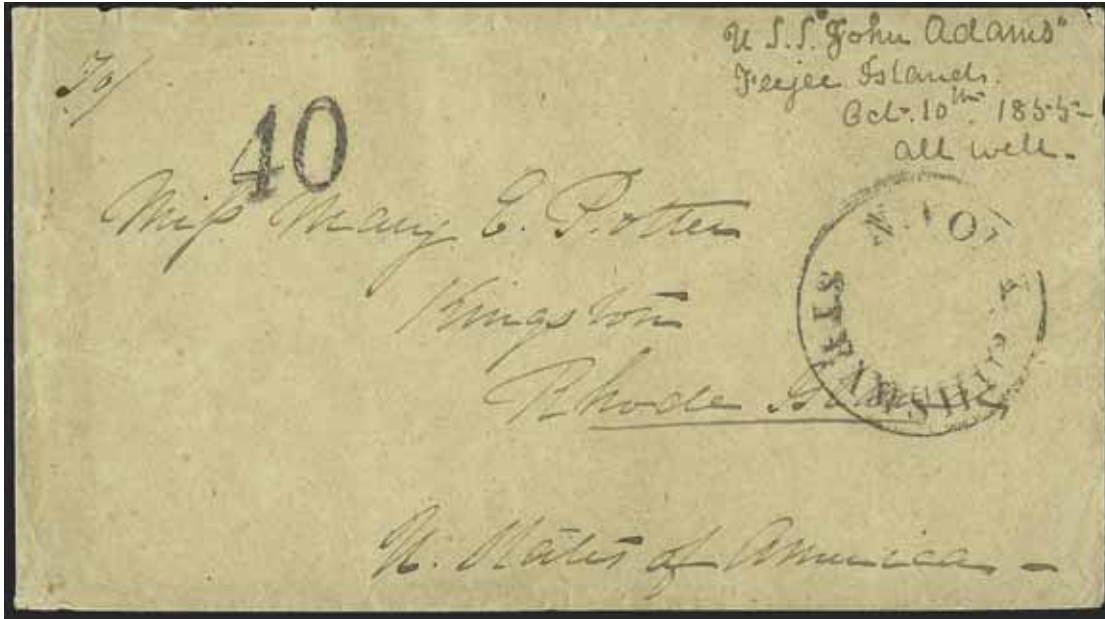 U.S.S. "John Adams"
Feejee Islands.
Oct. 10th. 1855
all well.
To/
40
Miss Mary E. Potter
Kingston
Rhode Island
U. States of America -
STEAMSHIP